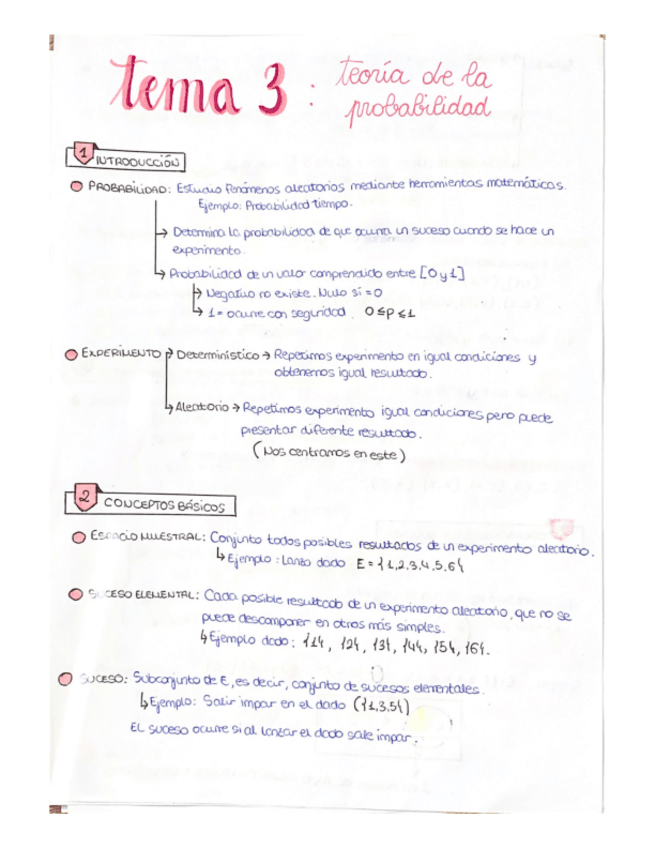 tema 3 : teoría de la
probabilidad
1 INTRODUCCIÓN
PROBABILIDAD: Estudio fenómenos aleatorios mediante herramientas matemáticas.
Ejemplo: Probabilidad tiempo.
→ Determina la probabilidad de que ocurra un suceso cuando se hace un
experimento.
→ Probabilidad de un valor comprendido entre [0 y 1]
→ Negativo no existe. Nulo sí = 0
→ 1 = ocurre con seguridad. 0 ≤ p ≤ 1
EXPERIMENTO → Determinístico → Repetimos experimento en igual condiciones y
obtenemos igual resultado.
→ Aleatorio → Repetimos experimento igual condiciones pero puede
presentar diferente resultado.
(Nos centramos en este)
2 CONCEPTOS BÁSICOS
ESPACIO MUESTRAL: Conjunto todos posibles resultados de un experimento aleatorio.
↳ Ejemplo: Lanzo dado E = {1,2,3,4,5,6}
SUCESO ELEMENTAL: Cada posible resultado de un experimento aleatorio, que no se
puede descomponer en otros más simples.
↳ Ejemplo dado: {1}, {2}, {3}, {4}, {5}, {6}.
SUCESO: Subconjunto de E, es decir, conjunto de sucesos elementales.
↳ Ejemplo: Salir impar en el dado ({1,3,5})
EL suceso ocurre si al lanzar el dado sale impar.